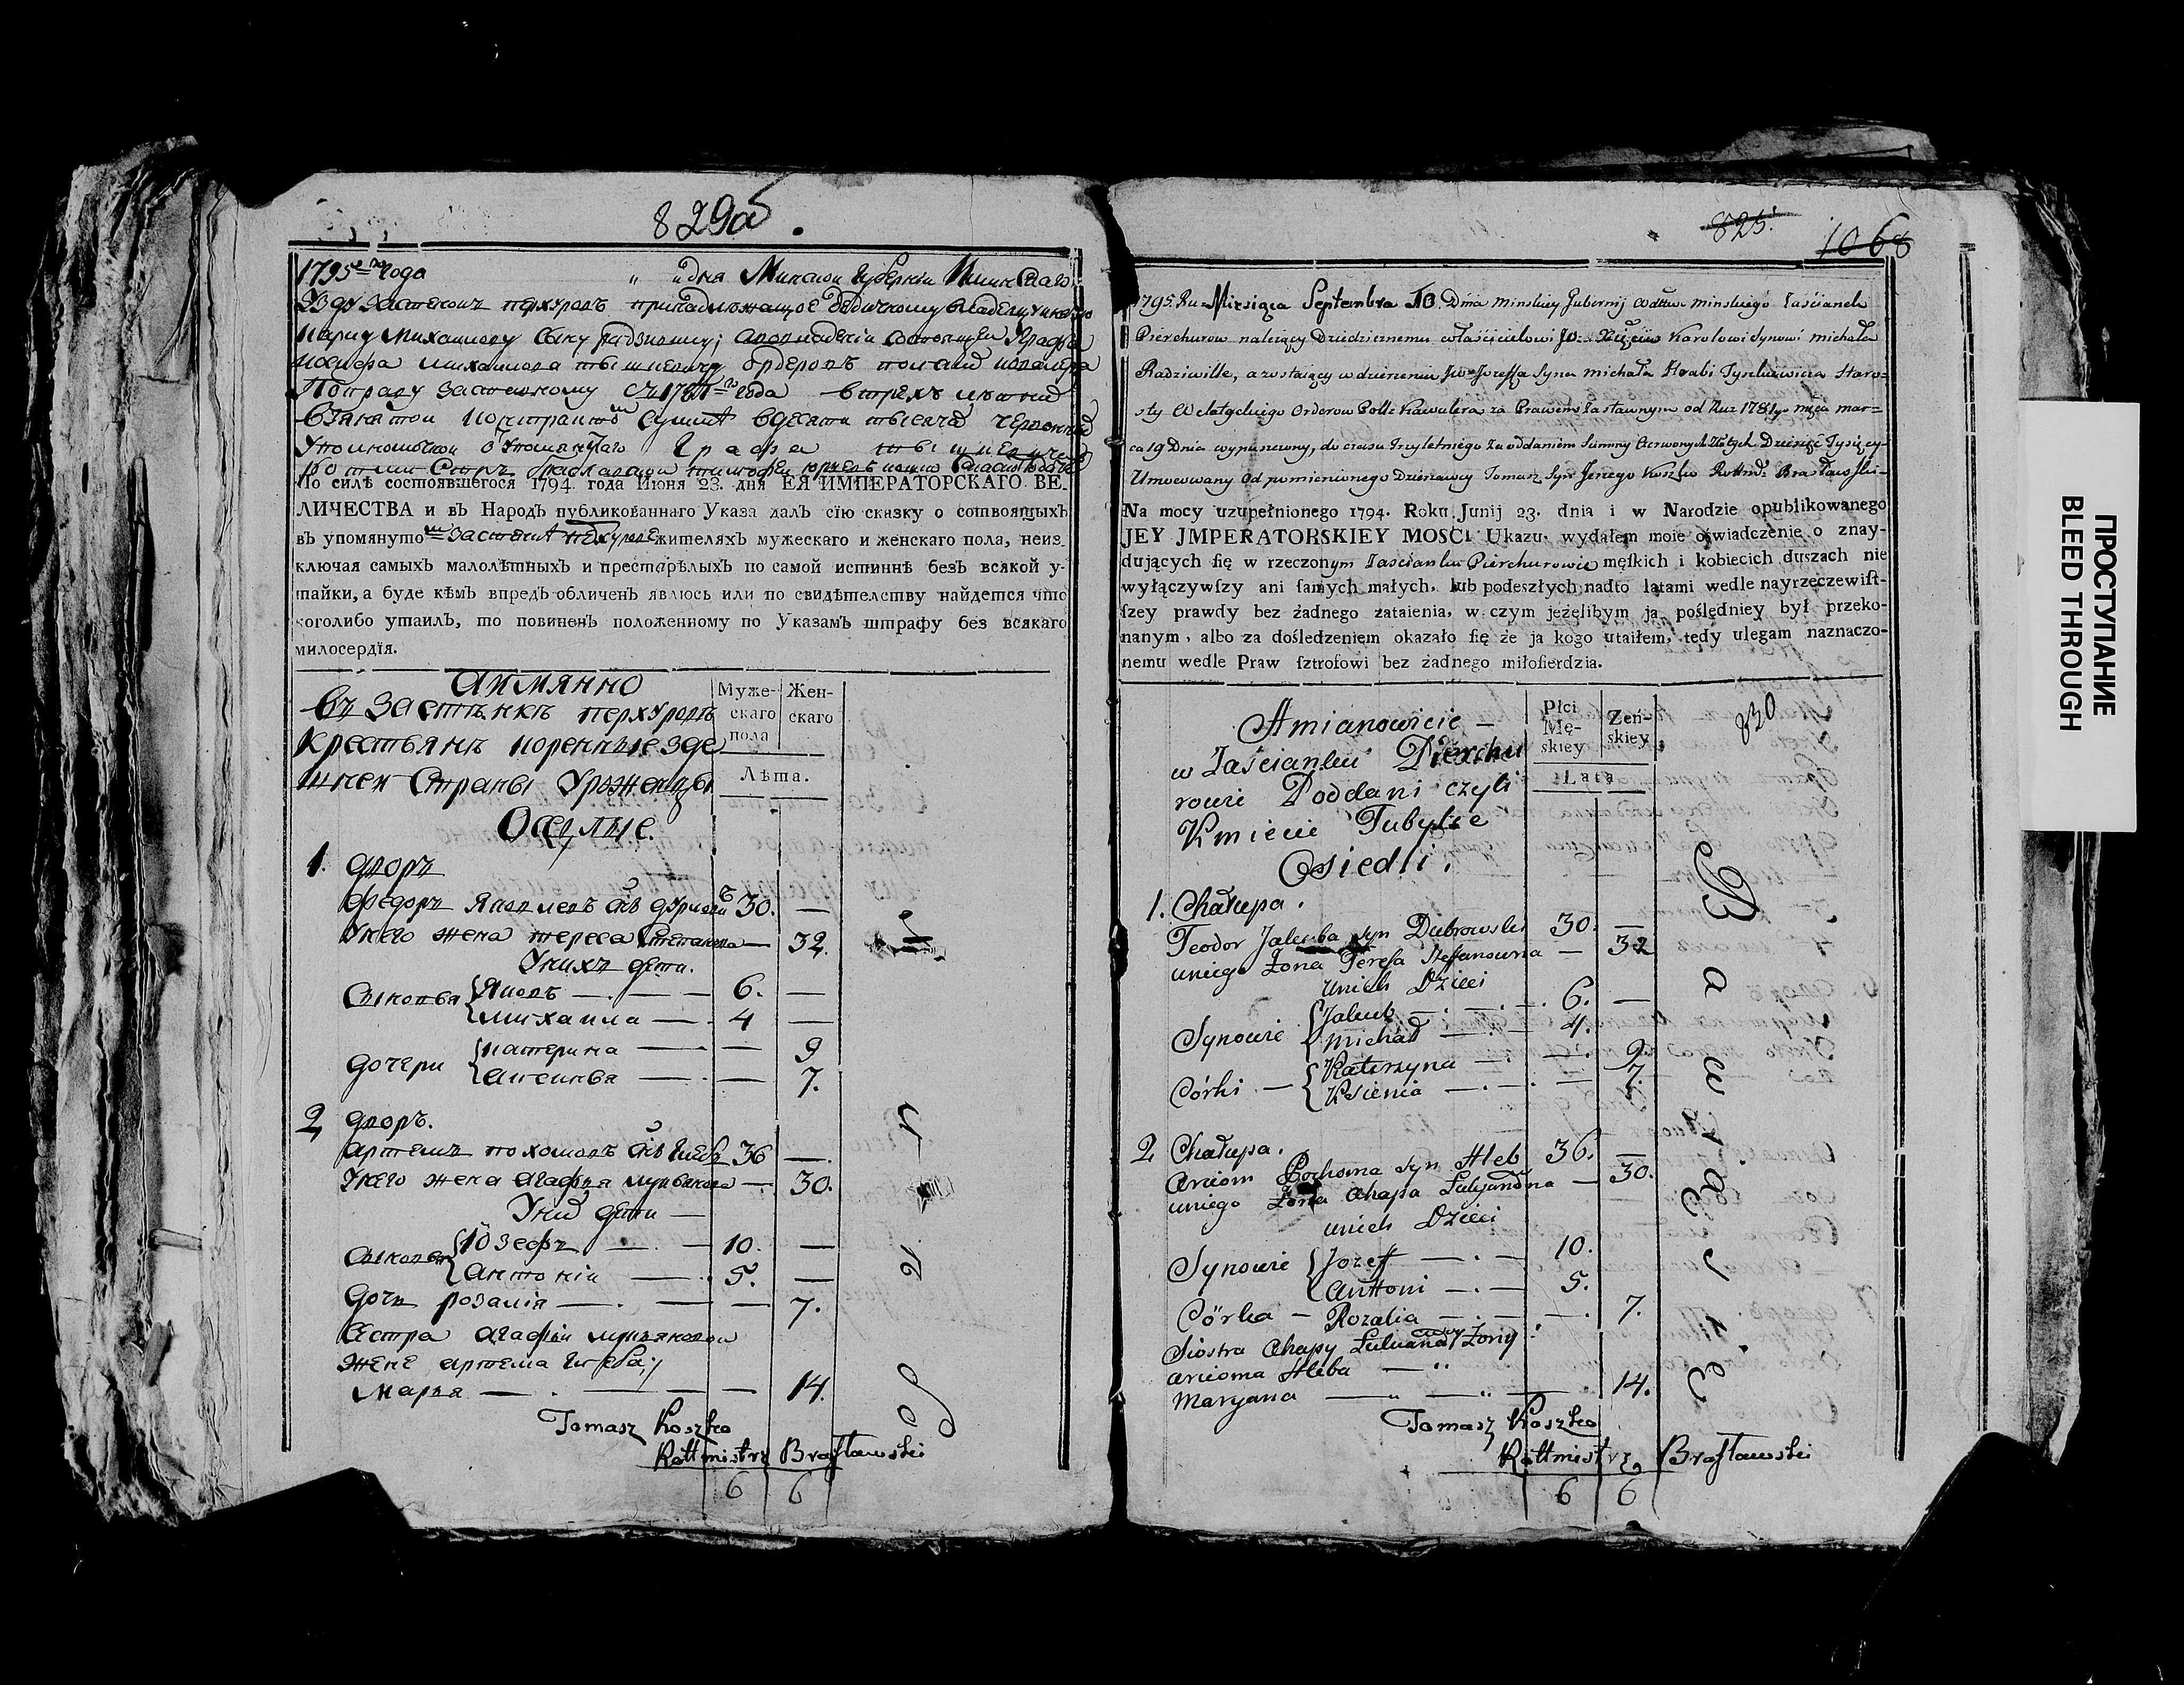 829об.
1795го года " " дня Минской Губернии Минскаго
Уезду застенокъ перхуровъ принадлежащое дедичному владелцу князю
Карлу Михаилову сыну радзивилу;
Иосифа Михаилова тышкевича ордеровъ полских кавалера
По праву заставному съ 1781го года
Графа тышкевича
По силѣ состоявшегося 1794 года Июня 23. дня ЕЯ ИМПЕРАТОРСКАГО ВЕ-
ЛИЧЕСТВА и въ Народъ публикованнаго Указа далъ сїю сказку о сотвоящыхъ
въ упомянуто застенке жителяхъ мужескаго и женскаго пола, неиз-
ключая самыхъ малолѣтныхъ и престарѣлыхъ по самой истиннѣ безъ всякой у-
тайки, а буде кѣмъ впредъ обличенъ явлюсь или по свидѣтелству найдется что
коголибо утаилъ, то повиненъ положенному по Указамъ штрафу без всякаго
милосердїя.
Аймянно
въ застѣнкѣ перхуровѣ
крестьянѣ коренныѣ зде
шней страны Уроженцы
Оседлые.
Муже-
скаго
пола
Жен-
скаго
Лѣта.
1. дворъ
Федоръ Яковлевъ снъ дубровский 30. —
У него жена тереса Степанова — 32.
У нихъ дети.
Сыновья { Яковъ — . — — 6. —
Михаила — . 4 —
дочери { катерина — — 9
аксинья — . — 7.
2 дворъ.
Артемъ похомовъ снъ Глебъ 36 —.
У него жена агафия лукьянова — 30.
У них дети —
Сыновья { Юзефъ — . — 10. —
антоній — . 5. —
дочь розалія — . — — 7.
Сестра агафіи лукьяновой
жене артема глеба;
Марья — . — — 14.
Tomasz Koszko
Rottmistrz Brasławski
6 6
825.
1068
1795. Ru Miesiąca Septembra 10 Dnia Minskiey Gubernij Minskiego Zaścianek
Pierchurow należący Dziedzicznemu właścicielowi Jo. Xięciu Karolowi Synowi Michała
Radziwille, a zostaiący w dzierżeniu Jw Jozeffa Syna Michała Hrabi Tyszkiewicza Staro-
sty Wielatyckiego Orderow Polk: Kawalera za Prawem Zastawnym od Ru: 1781go mca mar-
ca 19 Dnia wypisanemu, do czasu Trzyletniego za oddaniem Summy Czerwonych Złotych Dziesięć Tysięcy-
Umocowany od pomienionego Dzierżawcy Tomasz Syn Jerzego Koszko Rottm: Brasławski-
Na mocy uzupełnionego 1794. Roku Junij 23. dnia i w Narodzie opublikowanego
JEY JMPERATORSKIEY MOSCI Ukazu. wydałem moie oświadczenie o znay-
duiących ſię w rzeczonym Zaścianku Pierchurowie męſkich i kobiecich duszach nie
wyłączywſzy ani ſamych małych, lub podeszłych nadto latami wedle nayrzęczewiſt-
ſzey prawdy bez żadnego zataienia, w czym jeżelibym ja poślędniey był przeko-
nanym, albo za dośledzeniem okazało ſię że ja kogo utaiłem, tedy ulegam naznaczo-
nemu wedle Praw ſztrofowi bez żadnego miłoſierdzia.
Amianowicie —
w Zaścianku Pierchu
rowie Poddani czyli
Kmiecie Tubylce
Osiedli.
Płci
Mę-
skiey
Żeń-
skiey
Lata
830
1. Chałupa.
Teodor Jakuba syn Dubrowski 30. —
u niego Żona Teresa Steffanowna — 32
u nich Dzieci
Synowie { Jakub — . — . 6. —
Michał — . — 4.
Córki — { Katerzyna — . — . 9.
Ksienia — . — . — 7.
2 Chałupa.
Arciom Pochoma syn Hleb 36. —
u niego Żona Ahapa Łukjanowna — 30.
u nich Dzieci
Synowie { Jozeff — . — 10.
Anttoni — . — 5.
Córka — Rozalia — . — . 7.
Siostra Ahapy Łukianowny Żony
Arcioma Hleba — "
Maryana — " — " — 14.
Tomasz Koszko
Rottmistrz Brasławski
6 6
ПРОСТУПАНИЕ
BLEED THROUGH